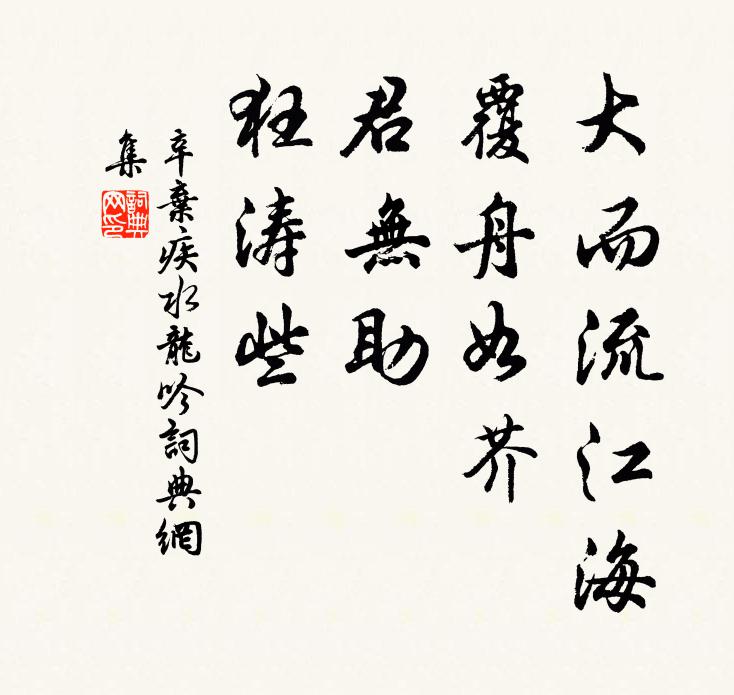 大而流江海
覆舟如芥
君無助
狂涛些
辛棄疾水龍吟詞典網
集
詞典网印